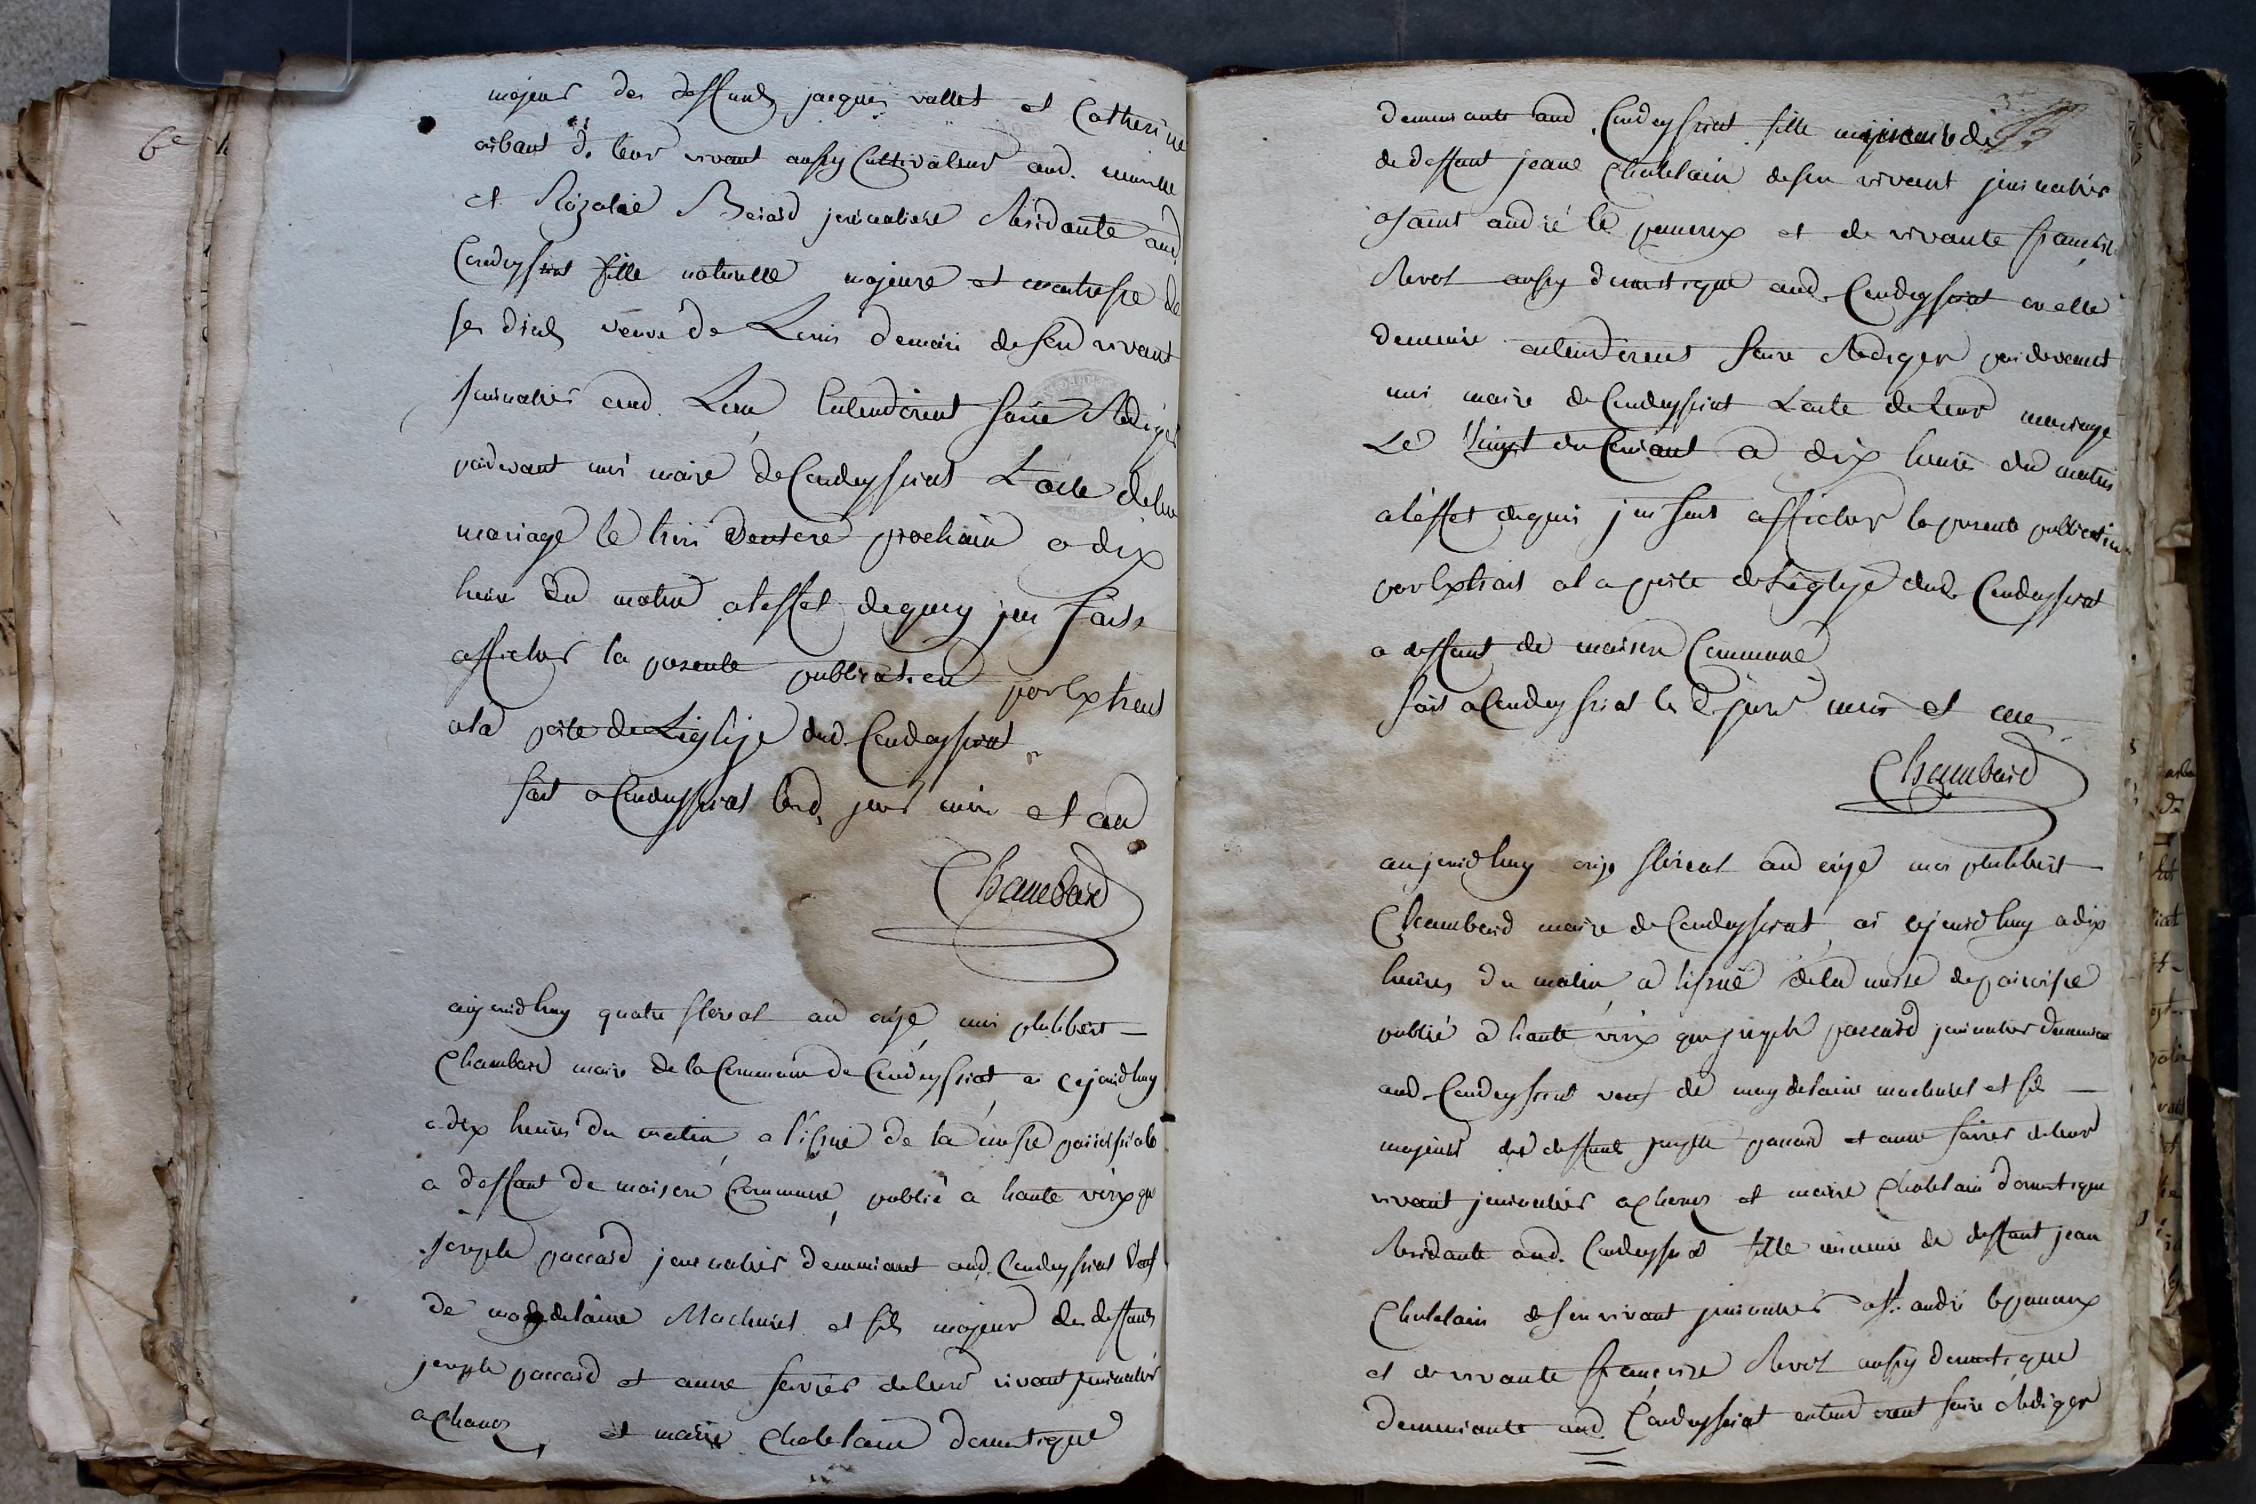 majeur des deffunts jacques vallet et Catherine
aibant de leur vivant aussy Cultivateur aud.
et Rozalie Berard journaliere Residante aud.
Condeyssiat fille naturelle majeure et de
ses dits veuve de Louis demari de son vivant
journalier aud. Lieu Entendirent faire Rediger
pardevant moi maire de Condeyssiat L'acte de leur
mariage le trois ventose prochain a dix
heures du matin a l'effet de quoy j'en fait
afficher la presente publication par Extrait
a la porte de L'eglise dud. Condeyssiat
fait a Condeyssiat led. jour mois et an
Chambard
aujourdhuy quatre floreal an onze moi philibert
Chambard maire de la Commune de Condeyssiat ai cejourdhuy
a dix heures du matin a l'issue de la messe paroissiale
a deffaut de maison Commune publié a haute voix que
joseph paccard journalier demeurant aud. Condeyssiat veuf
de magdelaine Machuret et fils majeur des deffunts
joseph paccard et anne ferrier de leur vivant journalier
a Chanoz et marie Chatelain domestique
demeurante aud. Condeyssiat fille
de deffunt jeane Chatelain de son vivant journalier
a saint andré le panoux et de vivante françoise
Revot aussy domestique aud. Condeyssiat ou elle
demeure entendirent faire Rediger pardevant
moi maire de Condeyssiat L'acte de leur mariage
Le vingt du Courant a dix heures du matin
a l'effet de quoi j'en fait afficher la presente publication
par Extrait a la porte de L'eglise dud. Condeyssiat
a deffaut de maison Commune
fait a Condeyssiat led. jour mois et an
Chambard
aujourdhuy onze floreal an onze moi philibert
Chambard maire de Condeyssiat ai cejourdhuy a dix
heures du matin a l'issue de la messe de paroisse
publié a haute voix que joseph paccard journalier demeurant
aud. Condeyssiat veuf de magdelaine machuret et fils
majeur des deffunts joseph paccard et anne ferrier de leur
vivant journalier a Chanoz et marie Chatelain domestique
Residante aud. Condeyssiat fille mineure de deffunt jean
Chatelain de son vivant journalier a st. andré le panoux
et de vivante françoise Revot aussy domestique
demeurante aud. Condeyssiat entendirent faire Rediger